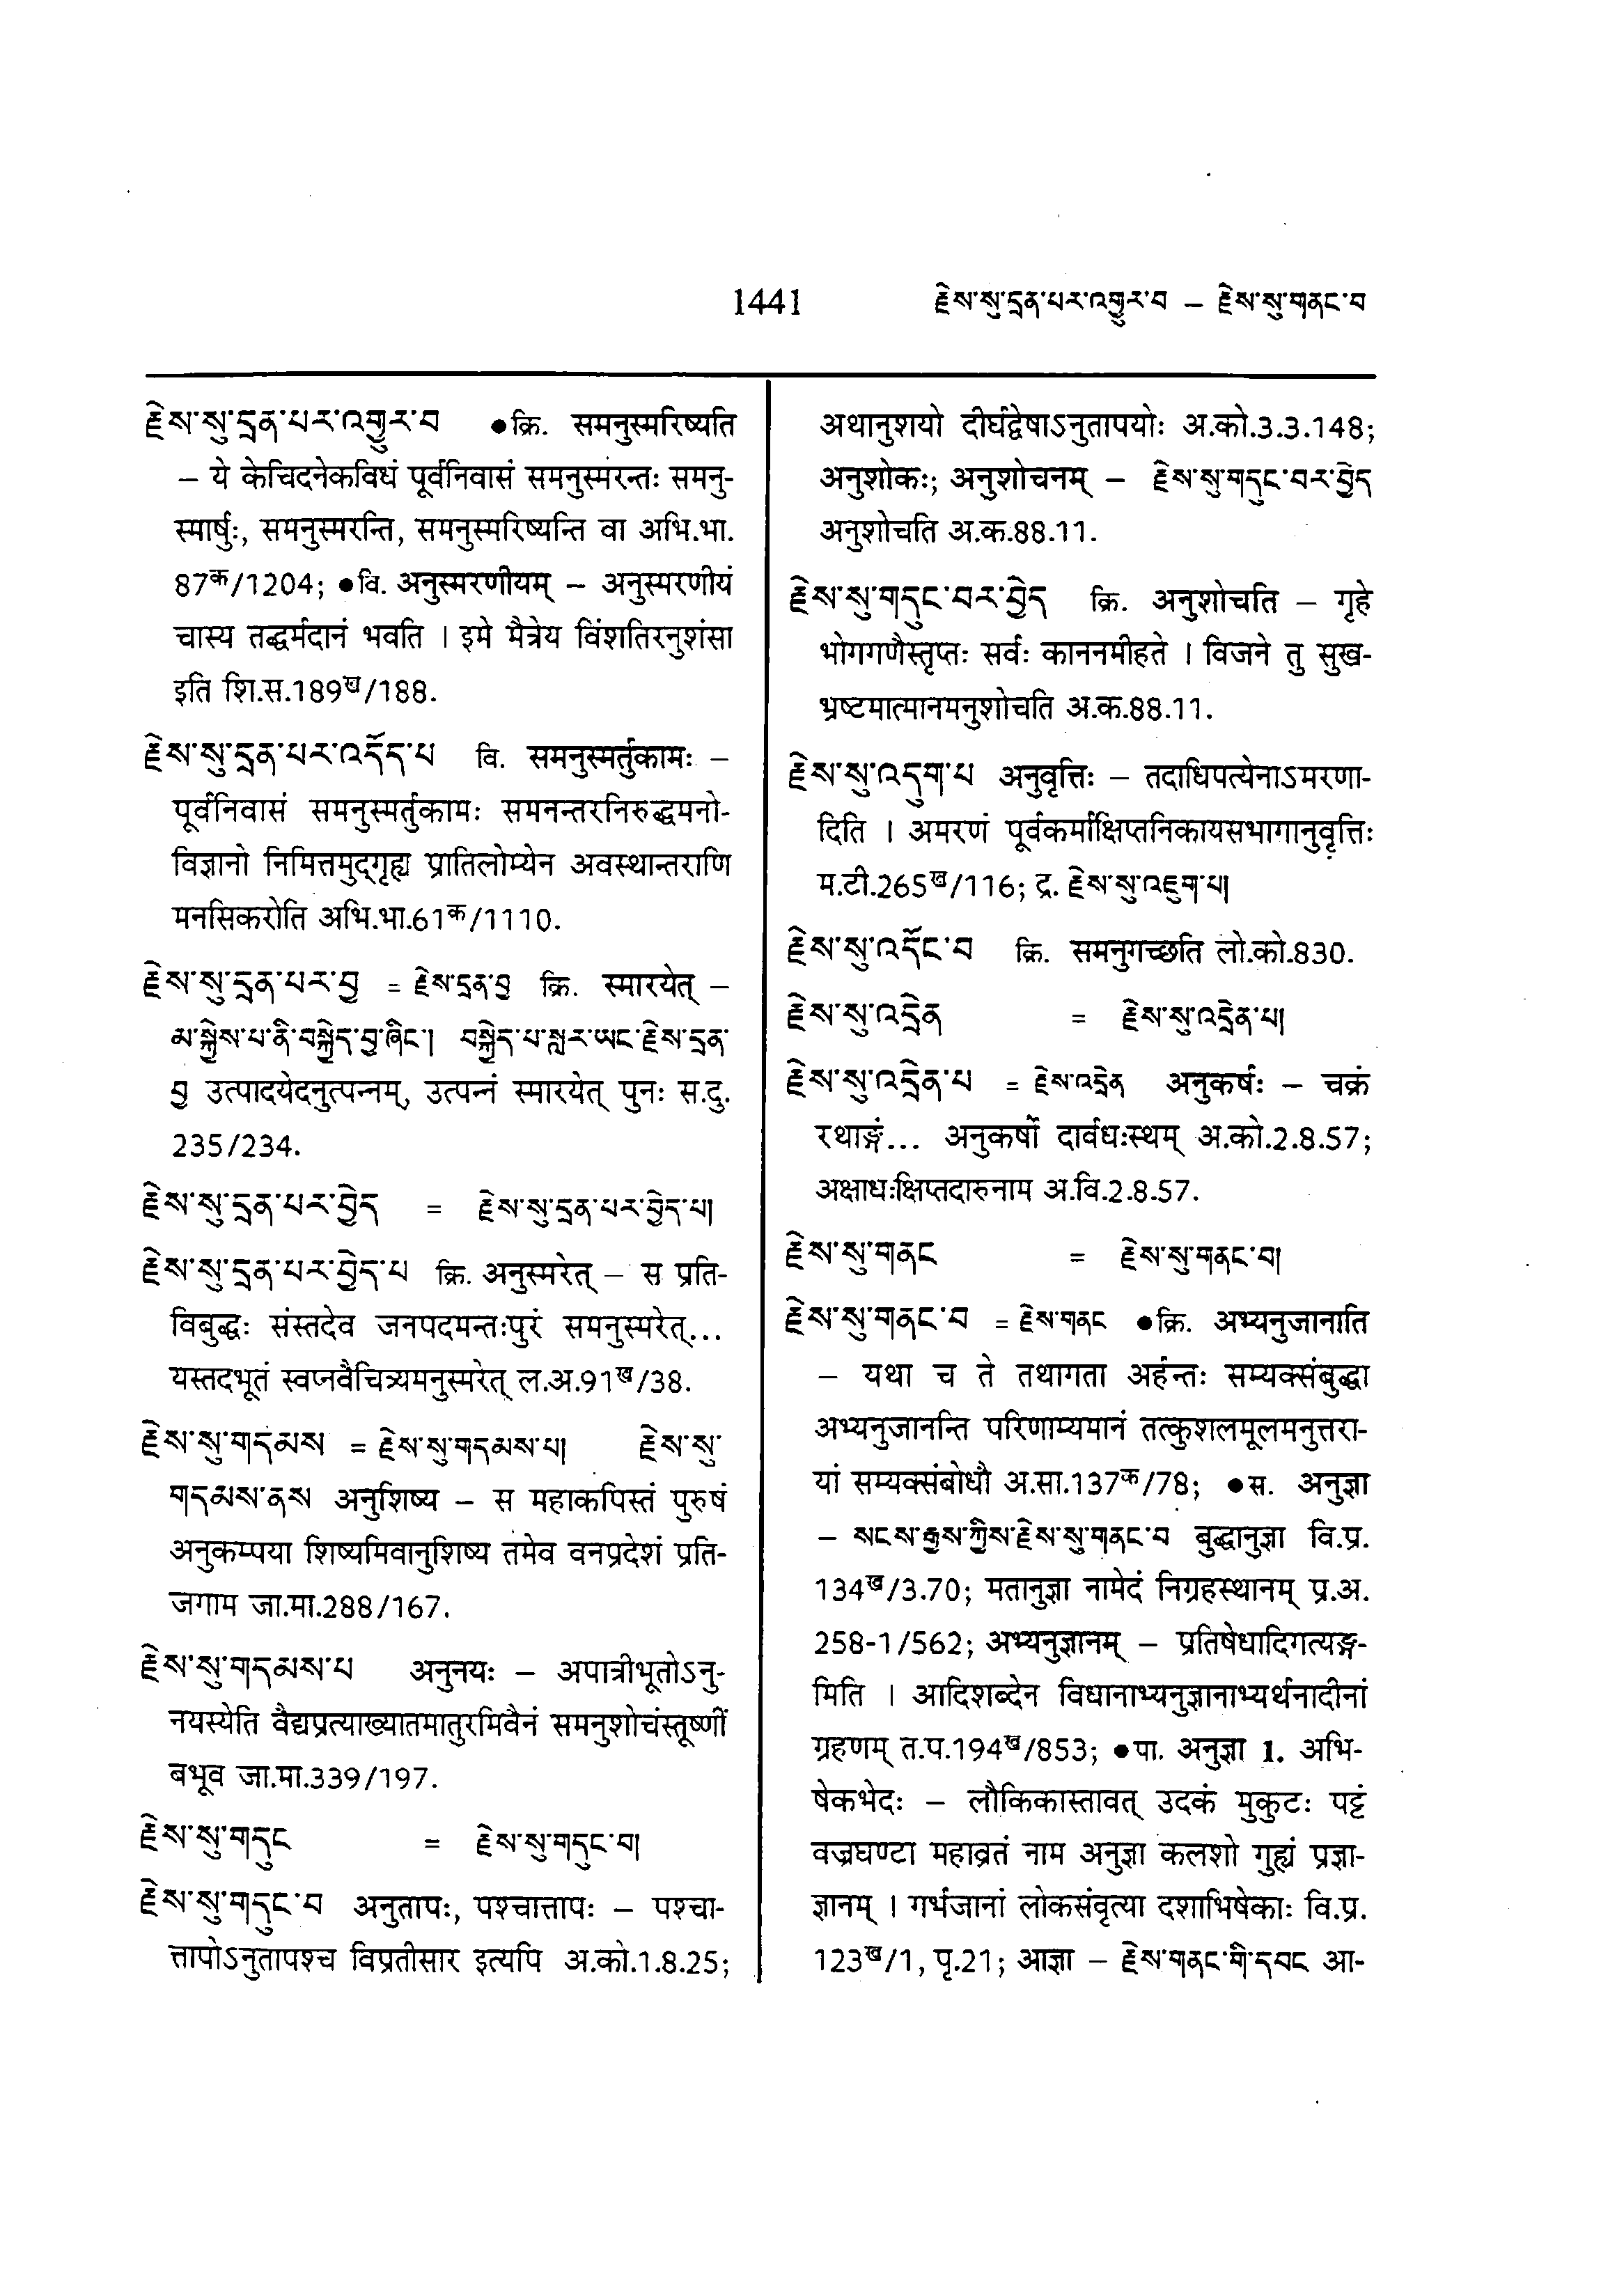 1441 རྗེས་སུ་དྲན་པར་འགྱུར་བ – རྗེས་སུ་གནང་བ
རྗེས་སུ་དྲན་པར་འགྱུར་བ ●क्रि. समनुस्मरिष्यति
– ये केचिदनेकविधं पूर्वनिवासं समनुस्मरन्तः समनु-
स्मार्षुः, समनुस्मरन्ति, समनुस्मरिष्यन्ति वा अभि.भा.
87क/1204; ●वि. अनुस्मरणीयम् – अनुस्मरणीयं
चास्य तद्धर्मदानं भवति । इमे मैत्रेय विंशतिरनुशंसा
इति शि.स.189ख/188.
རྗེས་སུ་དྲན་པར་འདོད་པ वि. समनुस्मर्तुकामः –
पूर्वनिवासं समनुस्मर्तुकामः समनन्तरनिरुद्धमनो-
विज्ञानो निमित्तमुद्गृह्य प्रातिलोम्येन अवस्थान्तराणि
मनसिकरोति अभि.भा.61क/1110.
རྗེས་སུ་དྲན་པར་བྱ = རྗེས་དྲན་བྱ क्रि. स्मारयेत् –
མ་སྐྱེས་པ་ནི་བསྐྱེད་བྱ་ཞིང་། བསྐྱེད་པ་སླར་ཡང་རྗེས་དྲན་
བྱ उत्पादयेदनुत्पन्नम्, उत्पन्नं स्मारयेत् पुनः स.दु.
235/234.
རྗེས་སུ་དྲན་པར་བྱེད = རྗེས་སུ་དྲན་པར་བྱེད་པ།
རྗེས་སུ་དྲན་པར་བྱེད་པ क्रि. अनुस्मरेत् – स प्रति-
विबुद्धः संस्तदेव जनपदमन्तःपुरं समनुस्मरेत्...
यस्तदभूतं स्वप्नवैचित्र्यमनुस्मरेत् ल.अ.91ख/38.
རྗེས་སུ་གདམས = རྗེས་སུ་གདམས་པ། རྗེས་སུ་
གདམས་ནས अनुशिष्य – स महाकपिस्तं पुरुषं
अनुकम्पया शिष्यमिवानुशिष्य तमेव वनप्रदेशं प्रति-
जगाम जा.मा.288/167.
རྗེས་སུ་གདམས་པ अनुनयः – अपात्रीभूतोऽनु-
नयस्येति वैद्यप्रत्याख्यातमातुरमिवैनं समनुशोचंस्तूष्णीं
बभूव जा.मा.339/197.
རྗེས་སུ་གདུང = རྗེས་སུ་གདུང་བ།
རྗེས་སུ་གདུང་བ अनुतापः, पश्चात्तापः – पश्चा-
त्तापोऽनुतापश्च विप्रतीसार इत्यपि अ.को.1.8.25;
अथानुशयो दीर्घद्वेषाऽनुतापयोः अ.को.3.3.148;
अनुशोकः; अनुशोचनम् – རྗེས་སུ་གདུང་བར་བྱེད
अनुशोचति अ.क.88.11.
རྗེས་སུ་གདུང་བར་བྱེད क्रि. अनुशोचति – गृहे
भोगगणैस्तृप्तः सर्वः काननमीहते । विजने तु सुख-
भ्रष्टमात्मानमनुशोचति अ.क.88.11.
རྗེས་སུ་འདུག་པ अनुवृत्तिः – तदाधिपत्येनाऽमरणा-
दिति । अमरणं पूर्वकर्माक्षिप्तनिकायसभागानुवृत्तिः
म.टी.265ख/116; द्र. རྗེས་སུ་འཇུག་པ།
རྗེས་སུ་འདོང་བ क्रि. समनुगच्छति लो.को.830.
རྗེས་སུ་འདྲེན = རྗེས་སུ་འདྲེན་པ།
རྗེས་སུ་འདྲེན་པ = རྗེས་འདྲེན अनुकर्षः – चक्रं
रथाङ्गं... अनुकर्षो दार्वधःस्थम् अ.को.2.8.57;
अक्षाधःक्षिप्तदारुनाम अ.वि.2.8.57.
རྗེས་སུ་གནང = རྗེས་སུ་གནང་བ།
རྗེས་སུ་གནང་བ = རྗེས་གནང ●क्रि. अभ्यनुजानाति
– यथा च ते तथागता अर्हन्तः सम्यक्संबुद्धा
अभ्यनुजानन्ति परिणाम्यमानं तत्कुशलमूलमनुत्तरा-
यां सम्यक्संबोधौ अ.सा.137क/78; ●स. अनुज्ञा
– སངས་རྒྱས་ཀྱིས་རྗེས་སུ་གནང་བ बुद्धानुज्ञा वि.प्र.
134ख/3.70; मतानुज्ञा नामेदं निग्रहस्थानम् प्र.अ.
258-1/562; अभ्यनुज्ञानम् – प्रतिषेधादिगत्यङ्ग-
मिति । आदिशब्देन विधानाभ्यनुज्ञानाभ्यर्थनादीनां
ग्रहणम् त.प.194ख/853; ●पा. अनुज्ञा 1. अभि-
षेकभेदः – लौकिकास्तावत् उदकं मुकुटः पट्टं
वज्रघण्टा महाव्रतं नाम अनुज्ञा कलशो गुह्यं प्रज्ञा-
ज्ञानम् । गर्भजानां लोकसंवृत्या दशाभिषेकाः वि.प्र.
123ख/1, पृ.21; आज्ञा – རྗེས་གནང་གི་དབང आ-